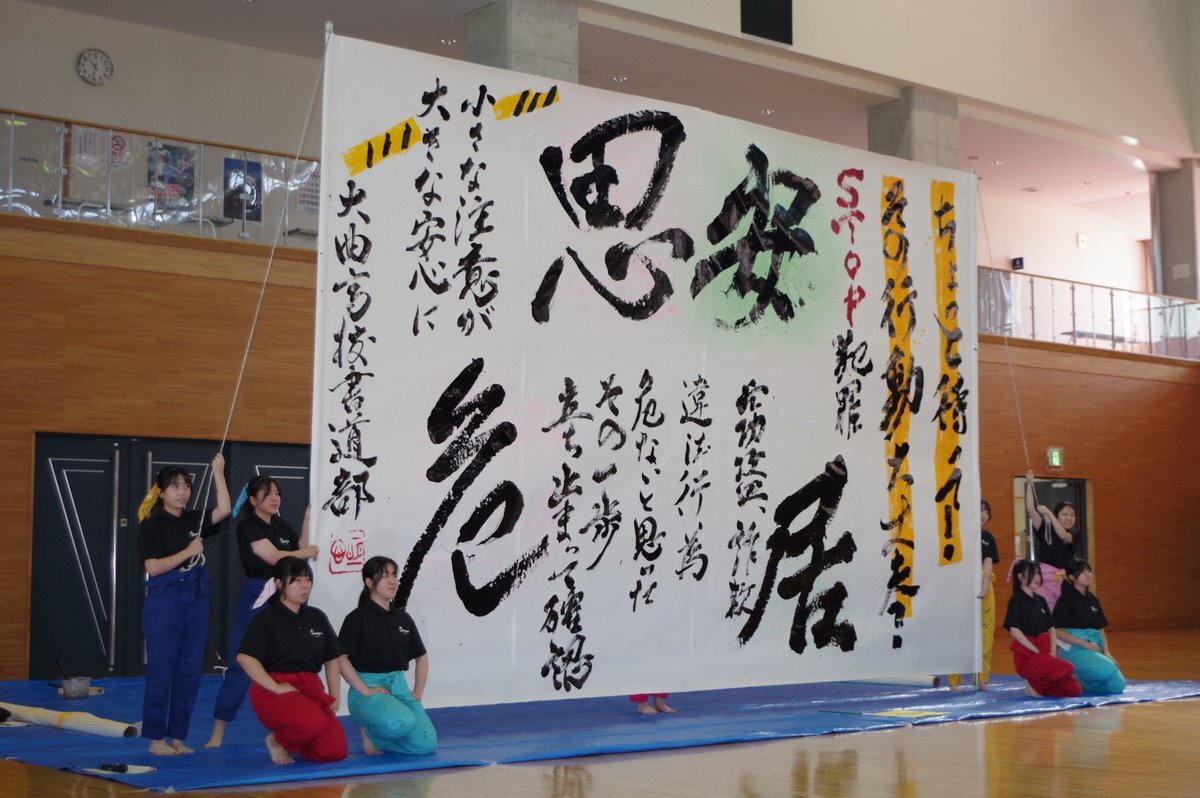 ちょっと待って!
その行動大丈夫?
STOP犯罪
安居
詐欺
違法行為
危ないと
その一歩
立ち止まって確認
思危
小さな注意が
大きな安心に
大曲高校書道部